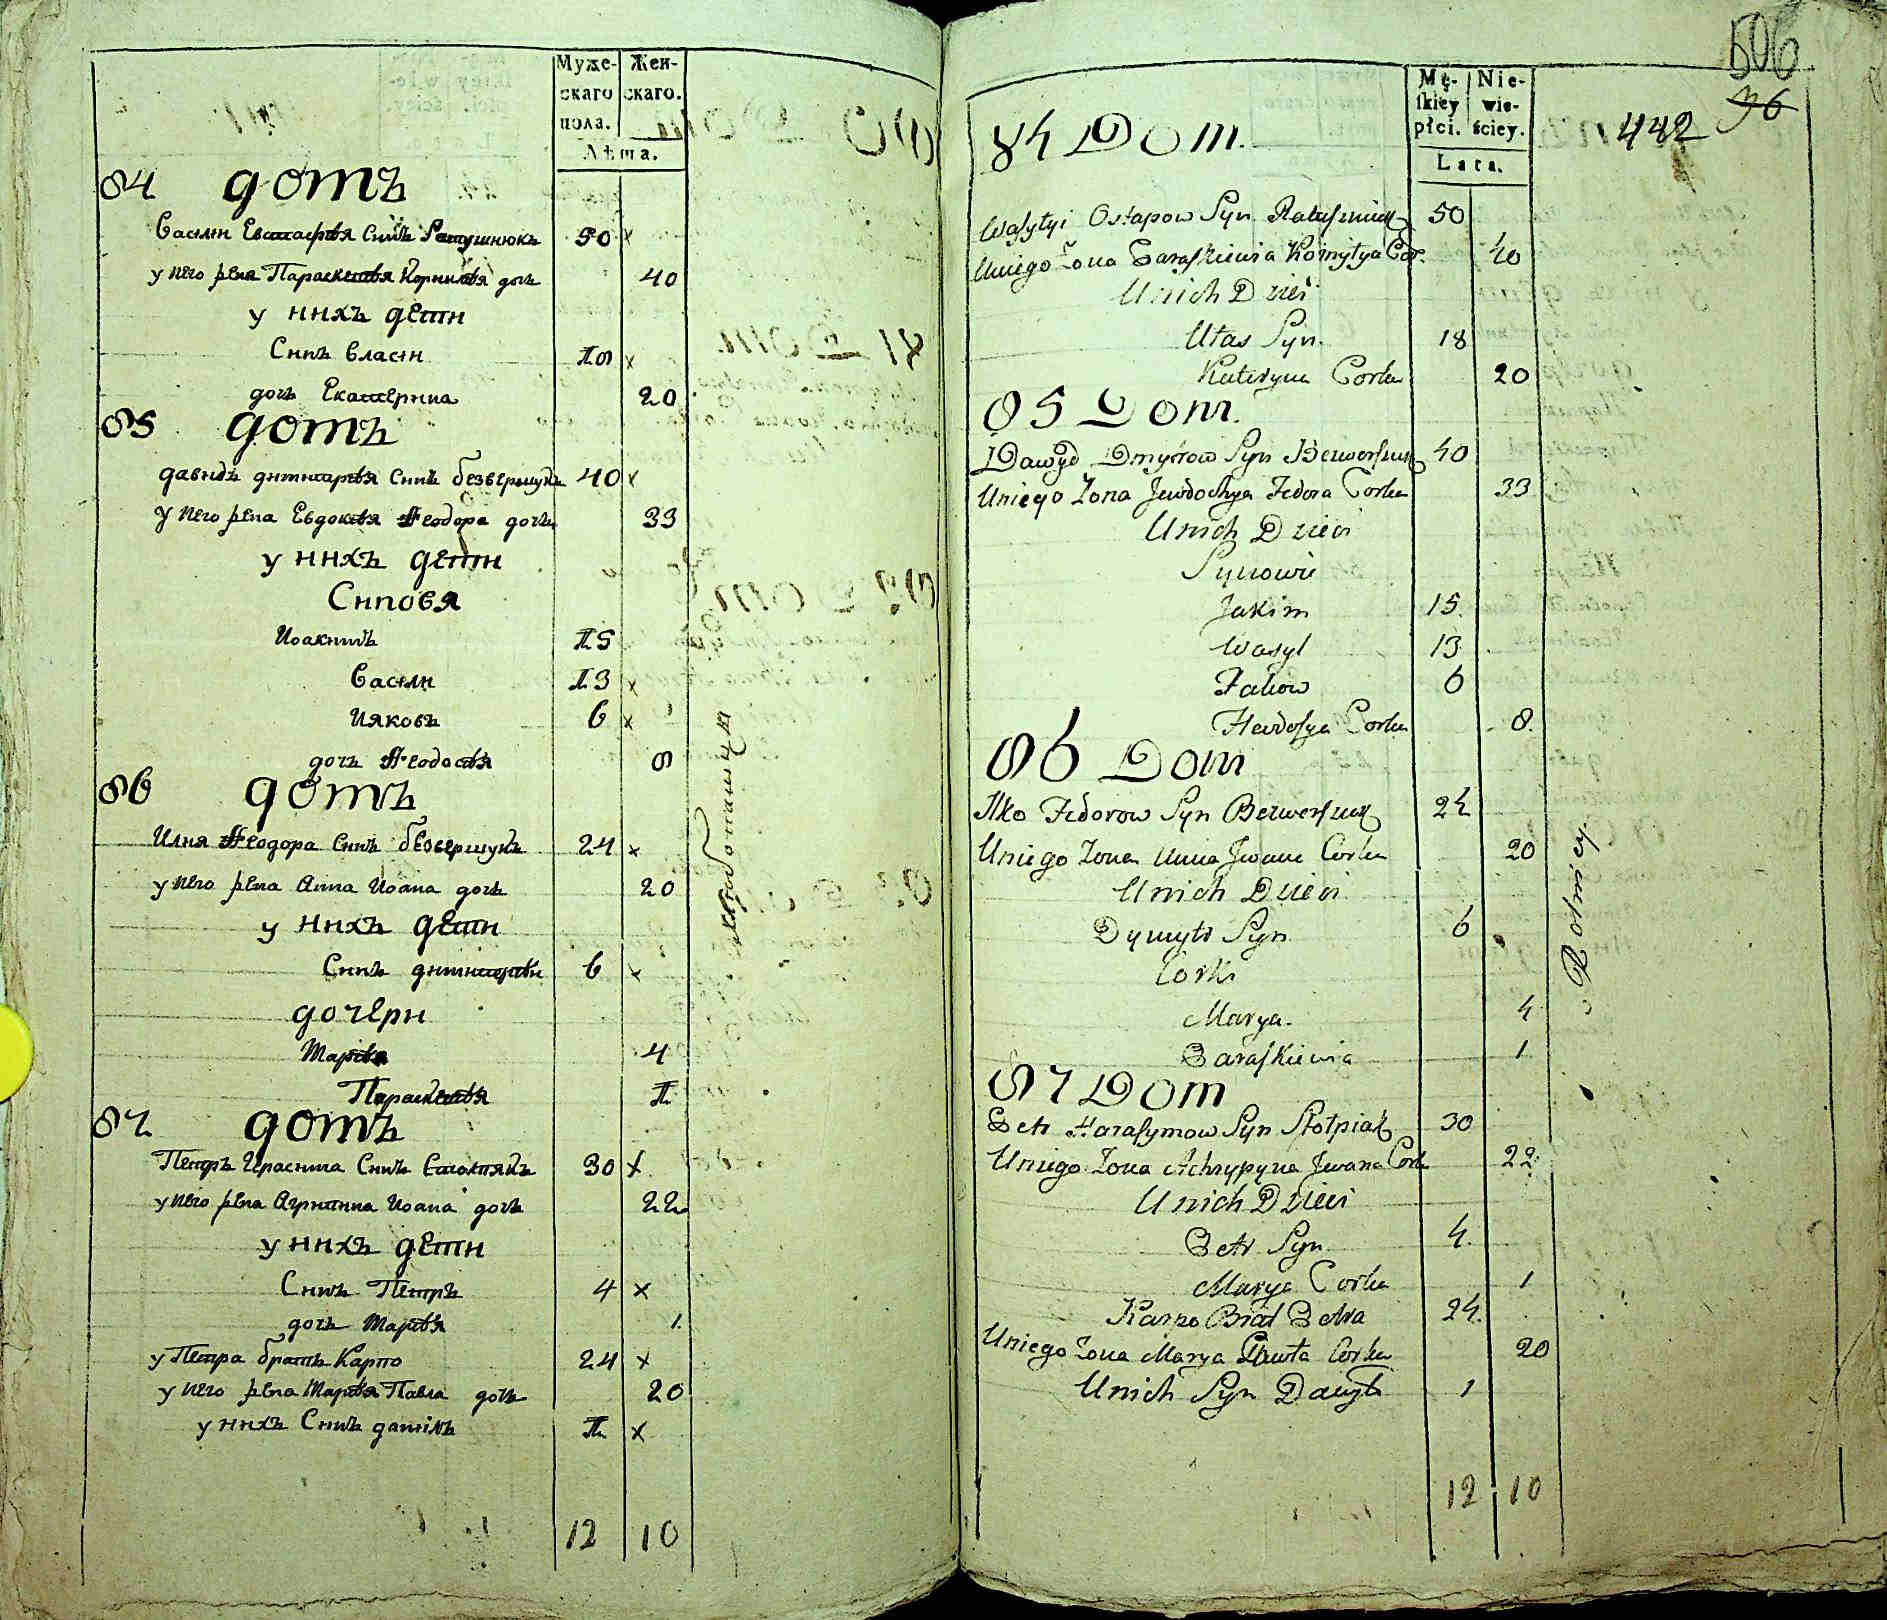 Муже- Жен-
скаго скаго.
пола.
Лѣта.
84 домъ
Василй Евстафѣя Синъ Ратушнюкъ 50 x
у него жена Параскевѣя Корнилѣя дочь 40
у нихъ дети
Синъ Власій 18 x
дочь Екатерина 20
85 домъ
давидъ димитарѣя Синъ безвершукъ 40 x
у него жена Евдокѣя Феодора дочь 33
у нихъ дети
Синовя
Иоакимъ 15
Василй 13 x
Ияковъ 6 x
дочь Феодосѣя 8
86 домъ
Илия Феодора Синъ безвершукъ 24 x
у него жена Анна Иоана дочь 20
у нихъ дети
Синъ димитарѣй 6 x
дочери
Марѣя 4
Параскевѣя 1
87 домъ
Петръ Герасима Синъ Столпякъ 30 x
у него жена Агрипина Иоана дочь 22
у нихъ дети
Синъ Петръ 4 x
дочь Марѣя 1
у Петра братъ Карпо 24 x
у него жена Марѣя Павла дочь 20
у нихъ Синъ даниілъ 1 x
12 10
506
96
442
Mę- Nie-
skiey wie-
płci. ściey.
Lata.
84 Dom.
Wasylyi Ostapow Syn Ratuszniuk 50
Uniego Żona Paraskiewia Kornyłya Cor. 40
Unich Dzieci
Ułas Syn. 18
Kateryna Corka 20
85 Dom.
Dawyd Dmytrow Syn Bezwerszuk 40
Uniego Zona Jewdochya Fedora Corka 33
Unich Dzieci
Synowie
Jakim 15.
Wasyl 13
Jakow 6
Fewdosya Corka 8.
86 Dom
Ilko Fedorow Syn Bezwerszuk 24
Uniego Zona Anna Jwana Corka 20
Unich Dzieci
Dymytr Syn 6
Corki
Marya. 4
Paraskiewia 1
Rolniey
87 Dom
Petr Harasymow Syn Stołpiak 30
Uniego Zona Achrypyna Jwana Cork 22
Unich Dzieci
Petr Syn 4.
Marya Corka 1
Karpo Brat Petra 24.
Uniego Zona Marya Pawła Corka 20
Unich Syn Danyło 1
12 10